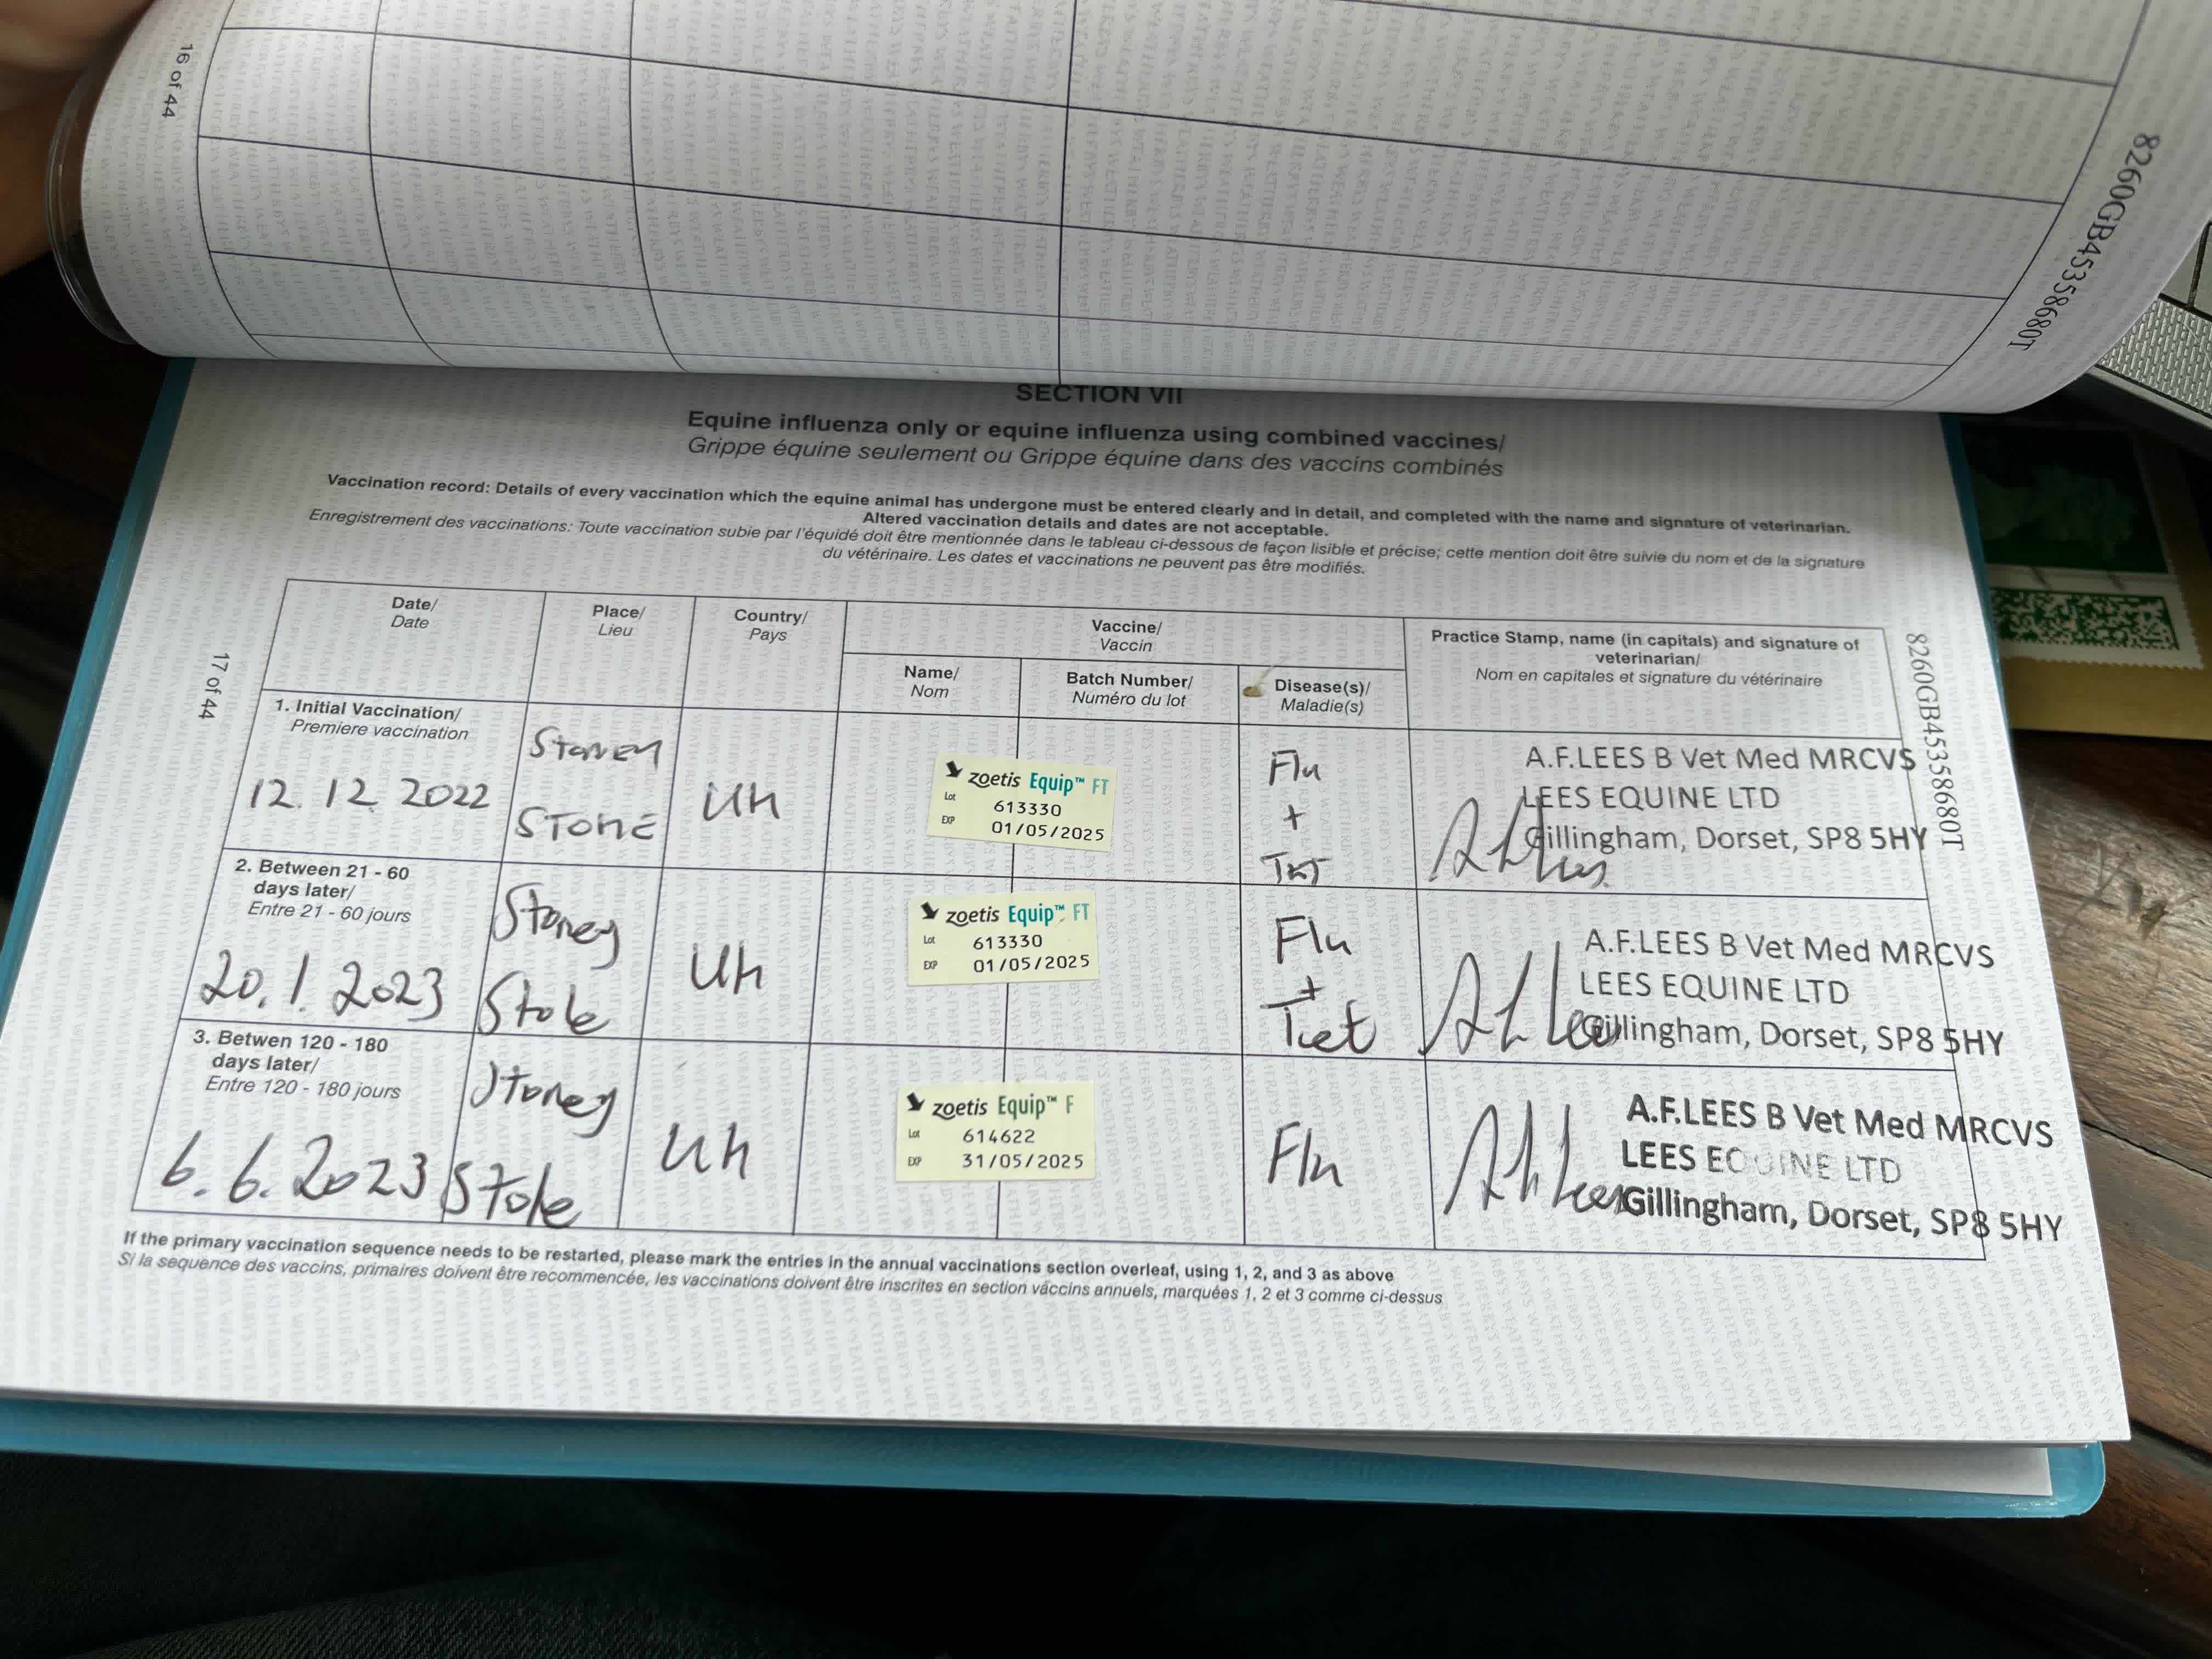 16 of 44
8260GB45358680T
SECTION VII
Equine influenza only or equine influenza using combined vaccines/
Grippe équine seulement ou Grippe équine dans des vaccins combinés
Vaccination record: Details of every vaccination which the equine animal has undergone must be entered clearly and in detail, and completed with the name and signature of veterinarian.
Altered vaccination details and dates are not acceptable.
Enregistrement des vaccinations: Toute vaccination subie par l'équidé doit être mentionnée dans le tableau ci-dessous de façon lisible et précise; cette mention doit être suivie du nom et de la signature
du vétérinaire. Les dates et vaccinations ne peuvent pas être modifiés.
17 of 44
8260GB45358680T
Date/
Date
Place/
Lieu
Country/
Pays
Vaccine/
Vaccin
Name/
Nom
Batch Number/
Numéro du lot
Disease(s)/
Maladie(s)
Practice Stamp, name (in capitals) and signature of
veterinarian/
Nom en capitales et signature du vétérinaire
1. Initial Vaccination/
Premiere vaccination
12.12.2022
Stoney
Uk
zoetis Equip™ FT
Lot 613330
EXP 01/05/2025
Flu
+
Tet
A.F.LEES B Vet Med MRCVS
LEES EQUINE LTD
Gillingham, Dorset, SP8 5HY
2. Between 21 - 60
days later/
Entre 21 - 60 jours
20.1.2023
Stoney
Uk
zoetis Equip™ FT
Lot 613330
EXP 01/05/2025
Flu
+
Tet
A.F.LEES B Vet Med MRCVS
LEES EQUINE LTD
Gillingham, Dorset, SP8 5HY
3. Betwen 120 - 180
days later/
Entre 120 - 180 jours
6.6.2023
Stoney
Uk
zoetis Equip™ F
Lot 614622
EXP 31/05/2025
Flu
A.F.LEES B Vet Med MRCVS
LEES EQUINE LTD
Gillingham, Dorset, SP8 5HY
If the primary vaccination sequence needs to be restarted, please mark the entries in the annual vaccinations section overleaf, using 1, 2, and 3 as above
Si la sequence des vaccins, primaires doivent être recommencée, les vaccinations doivent être inscrites en section vaccins annuels, marquées 1, 2 et 3 comme ci-dessus